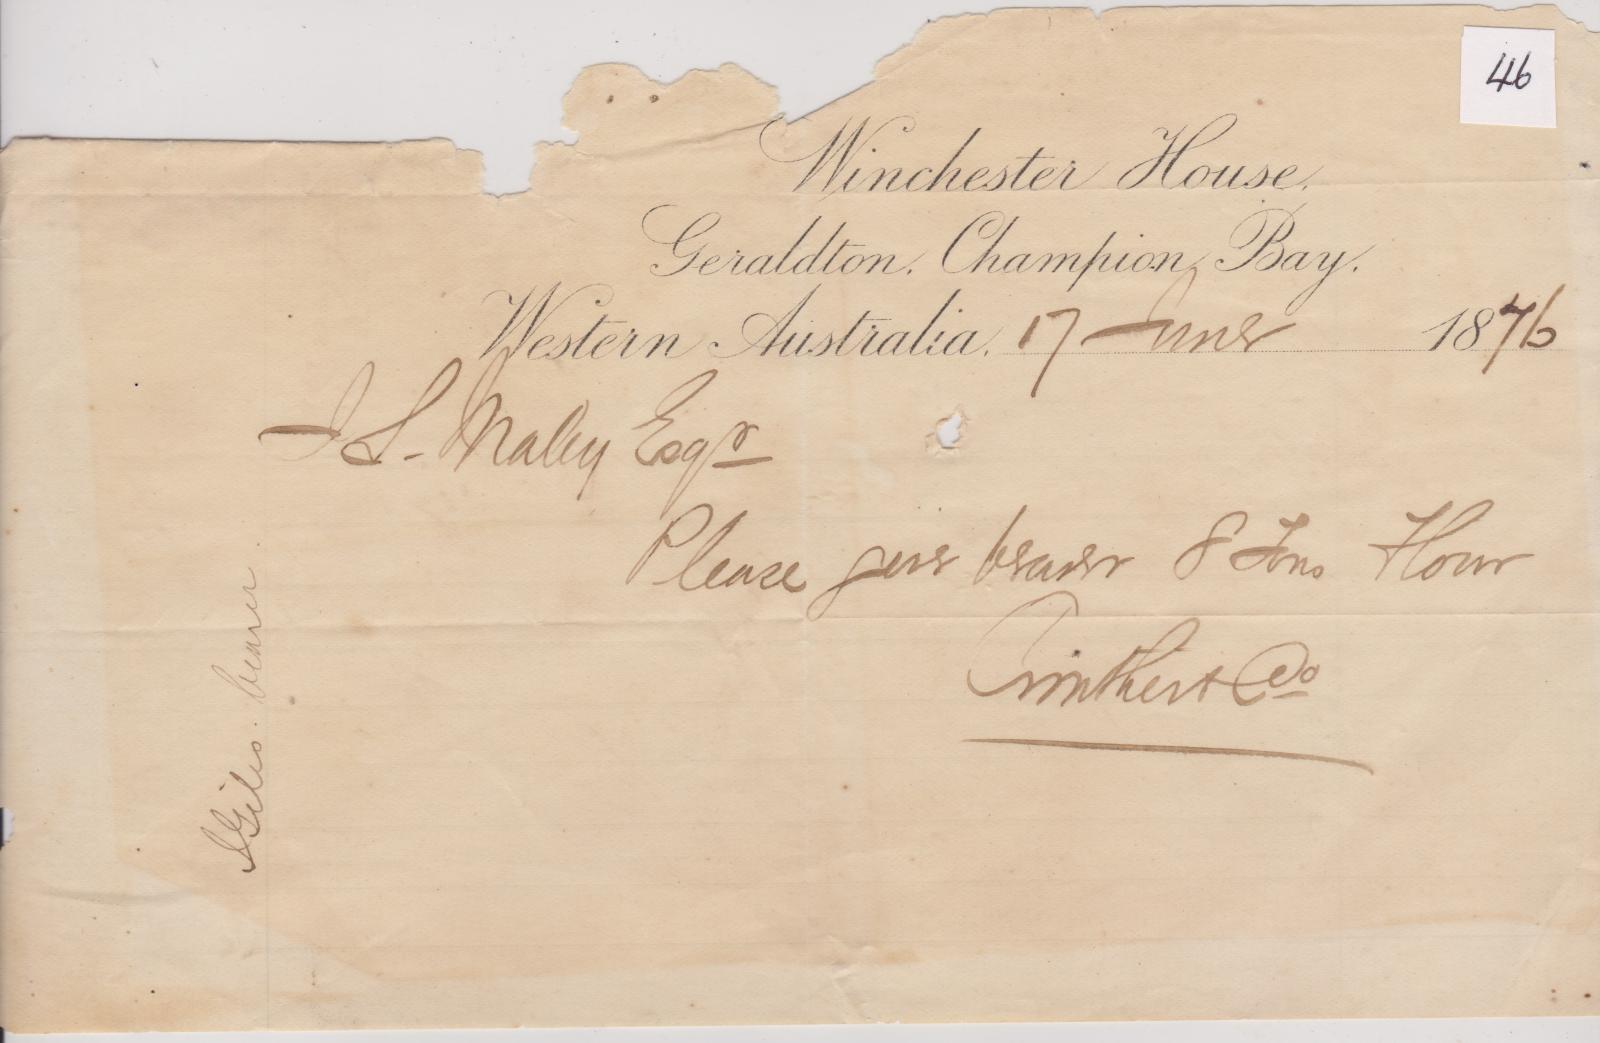 46
Winchester House.
Geraldton. Champion Bay.
Western Australia. 17 June 1876
J S. Maley Esqr
Please give bearer 8 Tons Flour
& Co
Giles. bearer